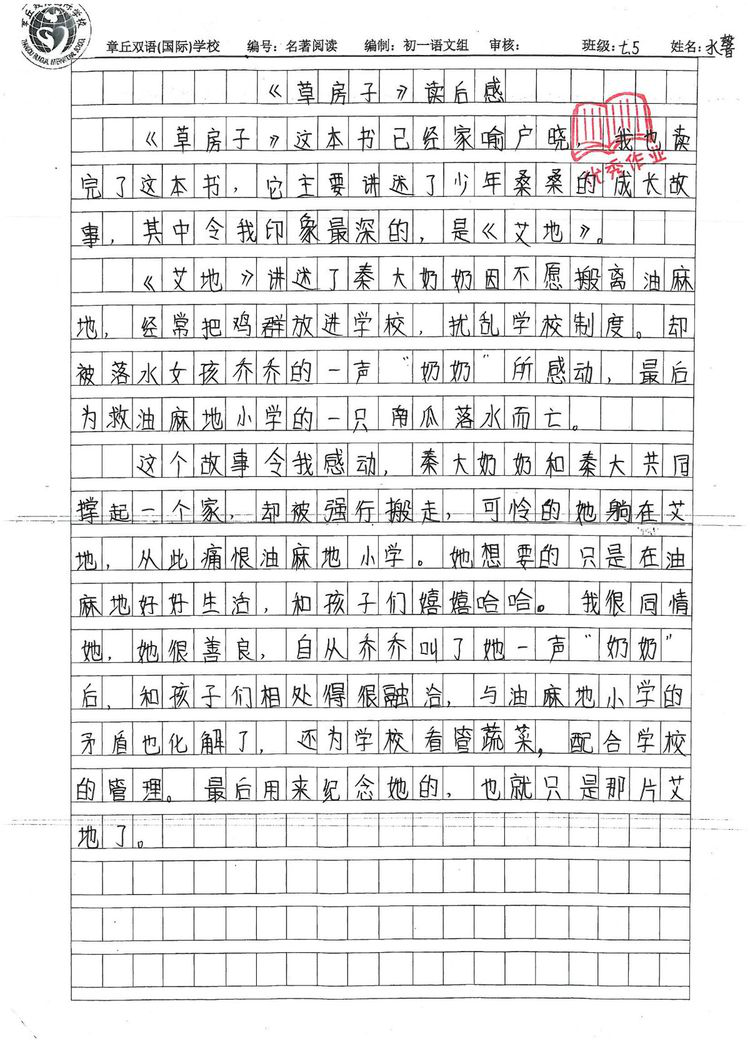 章丘双语(国际)学校 编号：名著阅读 编制：初一语文组 审核： 班级：七.5 姓名：水馨
《草房子》读后感
《草房子》这本书已经家喻户晓，我也读
优秀作业
完了这本书，它主要讲述了少年桑桑的成长故
事，其中令我印象最深的，是《艾地》。
《艾地》讲述了秦大奶奶因不愿搬离油麻
地，经常把鸡群放进学校，扰乱学校制度。却
被落水女孩乔乔的一声“奶奶”所感动，最后
为救油麻地小学的一只南瓜落水而亡。
这个故事令我感动，秦大奶奶和秦大共同
撑起一个家，却被强行搬走，可怜的她躺在艾
地，从此痛恨油麻地小学。她想要的只是在油
麻地好好生活，和孩子们嬉嬉哈哈。我很同情
她，她很善良，自从乔乔叫了她一声“奶奶”
后，和孩子们相处得很融洽，与油麻地小学的
矛盾也化解了，还为学校看管蔬菜，配合学校
的管理。最后用来纪念她的，也就只是那片艾
地了。